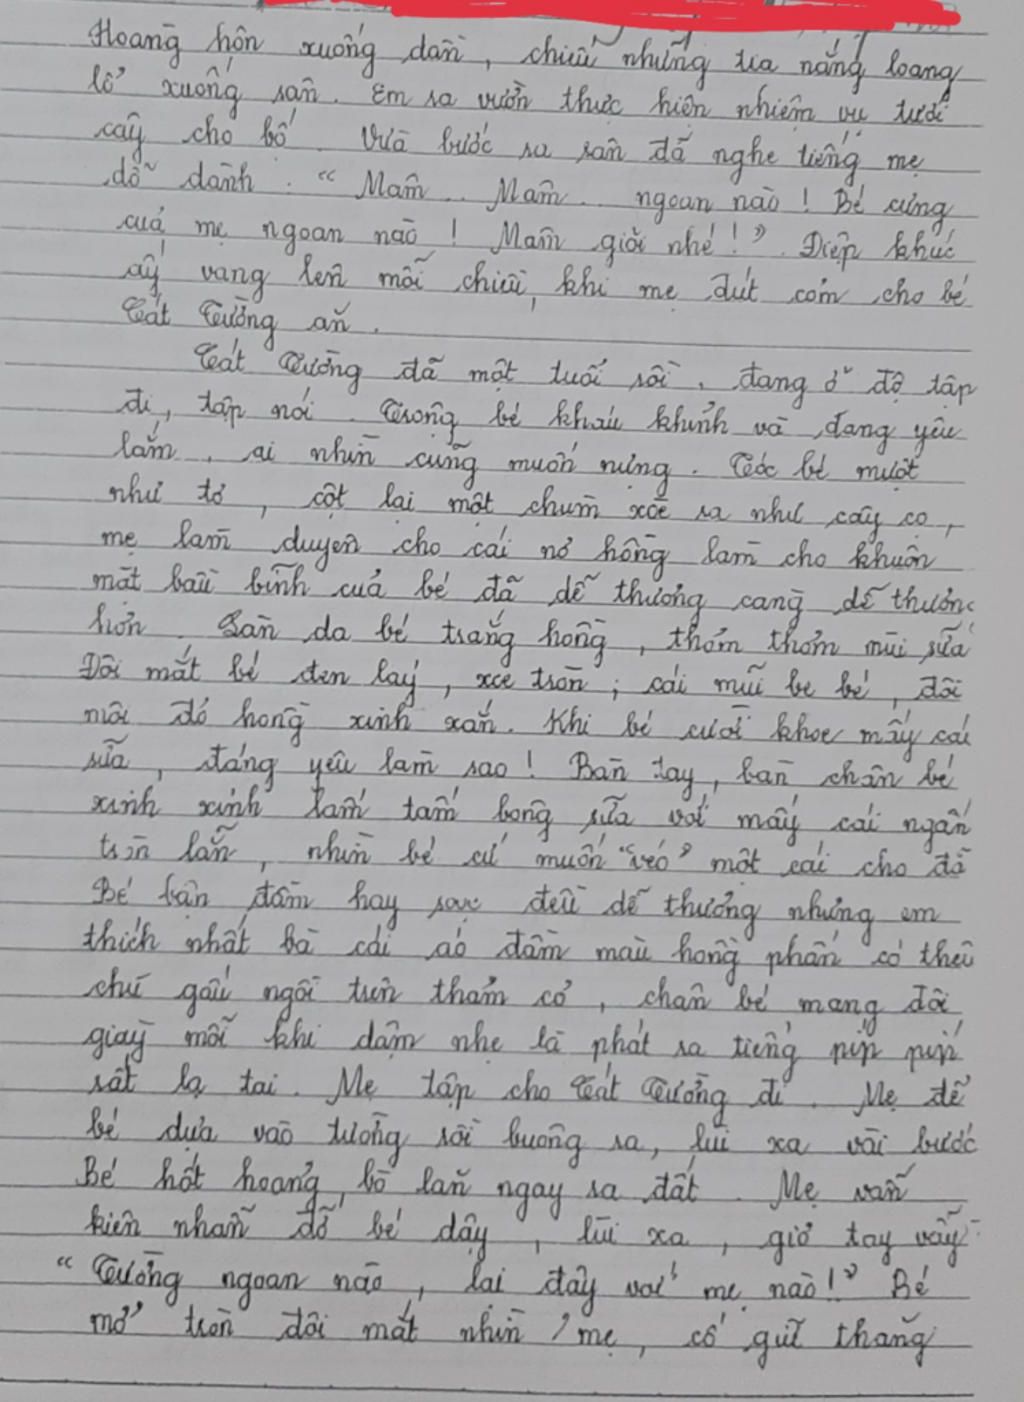 Hoàng hôn xuống dần, chiếu những tia nắng loang
lổ xuống sân. Em ra vườn thực hiện nhiệm vụ tưới
cây cho bố. Vừa bước ra sân đã nghe tiếng mẹ
dỗ dành: "Măm... Măm... ngoan nào! Bé cưng
của mẹ ngoan nào! Măm giỏi nhé!". Điệp khúc
ấy vang lên mỗi chiều, khi mẹ đút cơm cho bé
Cát Tường ăn.
Cát Tường đã một tuổi rồi, đang ở độ tập
đi, tập nói. Trông bé kháu khỉnh và đáng yêu
lắm, ai nhìn cũng muốn nựng. Tóc bé mượt
như tơ, cột lại một chùm xòe ra như cây cọ,
mẹ làm duyên cho cái nơ hồng làm cho khuôn
mặt bầu bĩnh của bé đã dễ thương càng dễ thương
hơn. Làn da bé trắng hồng, thơm thơm mùi sữa
Đôi mắt bé đen láy, xoe tròn; cái mũi be bé, đôi
môi đỏ hồng xinh xắn. Khi bé cười khoe mấy cái
sữa, đáng yêu làm sao! Bàn tay, bàn chân bé
xinh xinh lấm tấm bông sữa với mấy cái ngấn
tròn lẳn, nhìn bé cứ muốn "véo" một cái cho đã
Bé bận đầm hay sọc đều dễ thương nhưng em
thích nhất là cái áo đầm màu hồng phấn có thêu
chú gấu ngồi trên thảm cỏ, chân bé mang đôi
giày mỗi khi dậm nhẹ là phát ra tiếng píp píp
rất lạ tai. Mẹ tập cho Cát Tường đi. Mẹ để
bé dựa vào tường rồi buông ra, lùi xa vài bước
Bé hốt hoảng, bò lăn ngay ra đất. Mẹ vẫn
kiên nhẫn đỡ bé dậy, lùi xa, giơ tay vẫy:
"Tường ngoan nào, lại đây với mẹ nào!" Bé
mở tròn đôi mắt nhìn mẹ, cố giữ thăng